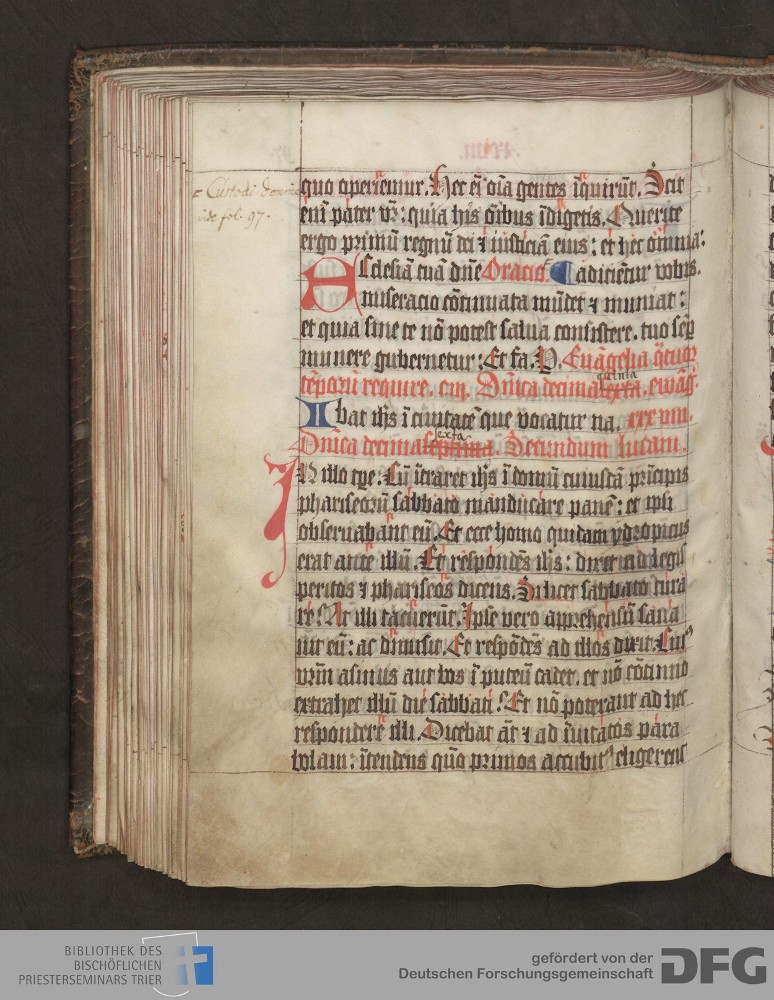 Custodi domine
vide fol. 97.
quo operiemur. Hec em̄ oīa gentes īquirūt. Scit
enī pater vr̄: quia his oībus īdigetis. Querite
ergo primū regnū dei ⁊ iusticiā eius: et hec omnia:
Eclesiā tuā dn̄e Oracio. ¶ adicientur vobis.
miseracio cōtinuata mūdet ⁊ muniat:
et quia sine te nō potest salua consistere. tuo sep̄
munere gubernetur: Et fa. P. Euāgelia q̄tuor
tēporū require. Dn̄ica decimasexta. ewāg.
quinta
Ibat ihs ī ciuitatē que vocatur na. xxxviii.
sexta
Dn̄ica decimaseptima. Secundum lucam.
IN illo tpe. Cū ītraret ihs ī domū cuiusdā prīcipis
phariseorū sabbato manducare panē: et ipsi
obseruabant eū. Et ecce homo quidam ydropicus
erat ante illū. Et respondēs ihs: dixit ad legis
peritos ⁊ phariseos dicens. Si licet sabbato cura
re? At illi tacuerūt. Ipse vero apprehensū sana
uit eū: ac dimisit. Et respōdēs ad illos dixit. Cuiꝰ
vr̄m asinus aut bos ī puteū cadet. et nō cōtinuo
extrahet illū die sabbati? Et nō poterant ad hec
respondere illi. Dicebat āt ⁊ ad īuitatos para
bolam: ītendens quō primos accubitꝰ eligerent
BIBLIOTHEK DES
BISCHÖFLICHEN
PRIESTERSEMINARS TRIER
gefördert von der
Deutschen Forschungsgemeinschaft
DFG